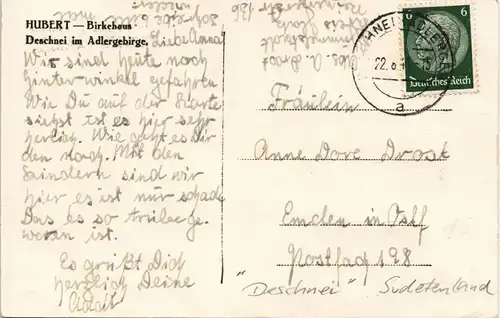 HUBERT — Birkehaus
Deschnei im Adlergebirge.
Liebe Anna
Wir sind heute noch
hinterwinkel gefahren
Wie Du auf der Karte
siehst ist es hier sehr
herlich. Wie geht es Dir
den noch. Mit den
Kindern sind wir
hier es ist nur schade
Das es so trübe ge-
wesen ist.
Es grüßt Dich
herzlich Deine
6
6
Deutsches Reich
22.8.
a
Fräulein
Anne Dore Drost
Emden in Ostf
Postfach 198
"Deschnei" Sudetenland